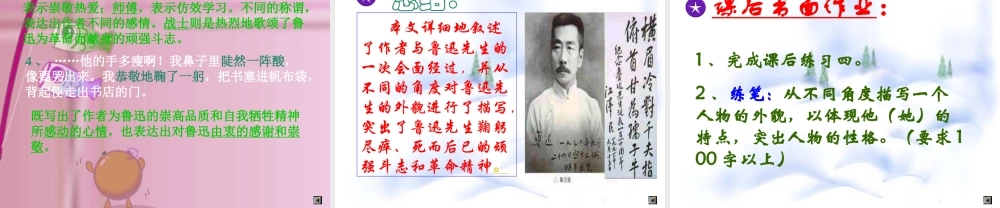 表示崇敬热爱；师傅，表示仿效学习。不同的称谓，
表达出作者不同的感情。战士则是热烈地歌颂了鲁
迅为革命而献身的顽强斗志。
4、 ……他的手多瘦啊！我鼻子里陡然一阵酸，
像要哭出来。我恭敬地鞠了一躬，把书塞进帆布袋，
背起便走出书店的门。
既写出了作者为鲁迅的崇高品质和自我牺牲精神
所感动的心情，也表达出对鲁迅由衷的感谢和崇
敬。
总结：
本文详细地叙述
了作者与鲁迅先生的
一次会面经过，并从
不同的角度对鲁迅先
生的外貌进行了描写，
突出了鲁迅先生鞠躬
尽瘁、死而后已的顽
强斗志和革命精神。
横眉冷對千夫指
俯首甘為孺子牛
鲁迅
课后书面作业：
1、完成课后练习四。
2、练笔：从不同角度描写一个
人物的外貌，以体现他（她）的
特点，突出人物的性格。（要求1
00字以上）